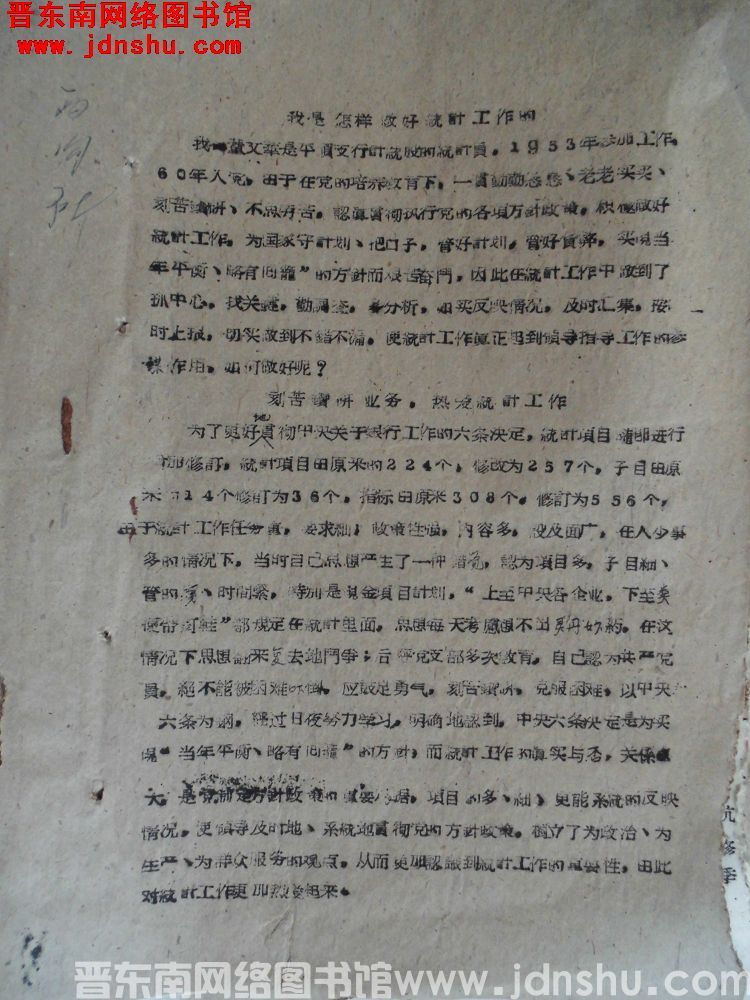 晋东南网络图书馆
www.jdnshu.com
我是怎样做好統計工作的
我董文 是平 支行計統股的統計員。1953年参加工作,
60年入党,由于在党的培养教育下,一貫勤勤恳恳、老老实实、
刻苦鑽研、不思劳苦。認真貫彻执行党的各項方針政策,积极做好
統計工作。为国家守計划、把口子。管好計划,管好貨幣,实現当
年平衡、略有回籠”的方針而艰苦奋鬥,因此在統計工作中做到了
抓中心,找关鍵,勤調查,多分析,如实反映情况,及时汇集,按
时上报,切实做到不錯不漏。使統計工作真正起到領导指导工作的参
謀作用。如何做好呢?
刻苦鑽研业务,热爱統計工作
为了更好地貫彻中央关于銀行工作的六条决定,統計項目随即进行
修訂,統計項目由原来的224个,修改为257个,子目由原
来 14个修訂为36个,指标由原来308个,修訂为556个,
由于統計工作任务重,要求細,政策性强,内容多,涉及面广,在人少事
多的情况下,当时自己思想产生了一种錯觉,認为項目多,子目細、
管的 、时間緊,特别是現金項目計划,“上至中央各企业,下至
”都規定在統計里面,思想每天考慮想不出 好 药。在这
情况下思想翻来复去地鬥爭;后經党支部多次教育,自己認为共产党
員,絕不能被困难吓倒,应鼓足勇气,刻苦鑽研,克服困难,以中央
六条为綱,經过日夜努力学习,明确地認到,中央六条决定是为实
現“当年平衡、略有回籠”的方針,而統計工作的真实与否,关係
大 是党制定方針政策的重要 据,項目的多、細、更能系統的反映
情况,使領导及时地、系統地貫彻党的方針政策。树立了为政治、为
生产、为群众服务的观点,从而更加認識到統計工作的重要性,由此
对統計工作更加热爱起来。
晋东南网络图书馆www.jdnshu.com